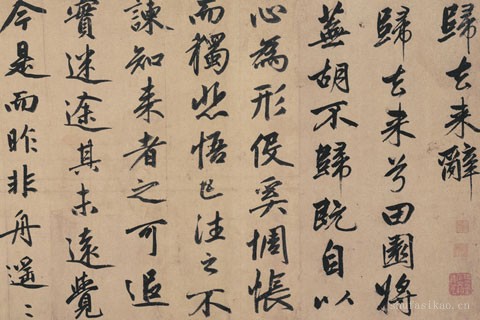 歸去来辭
歸去来兮田園将
蕪胡不歸既自以
心為形役奚惆悵
而獨悲悟已往之不
諫知来者之可追
實迷途其未遠覺
今是而昨非舟遥〻